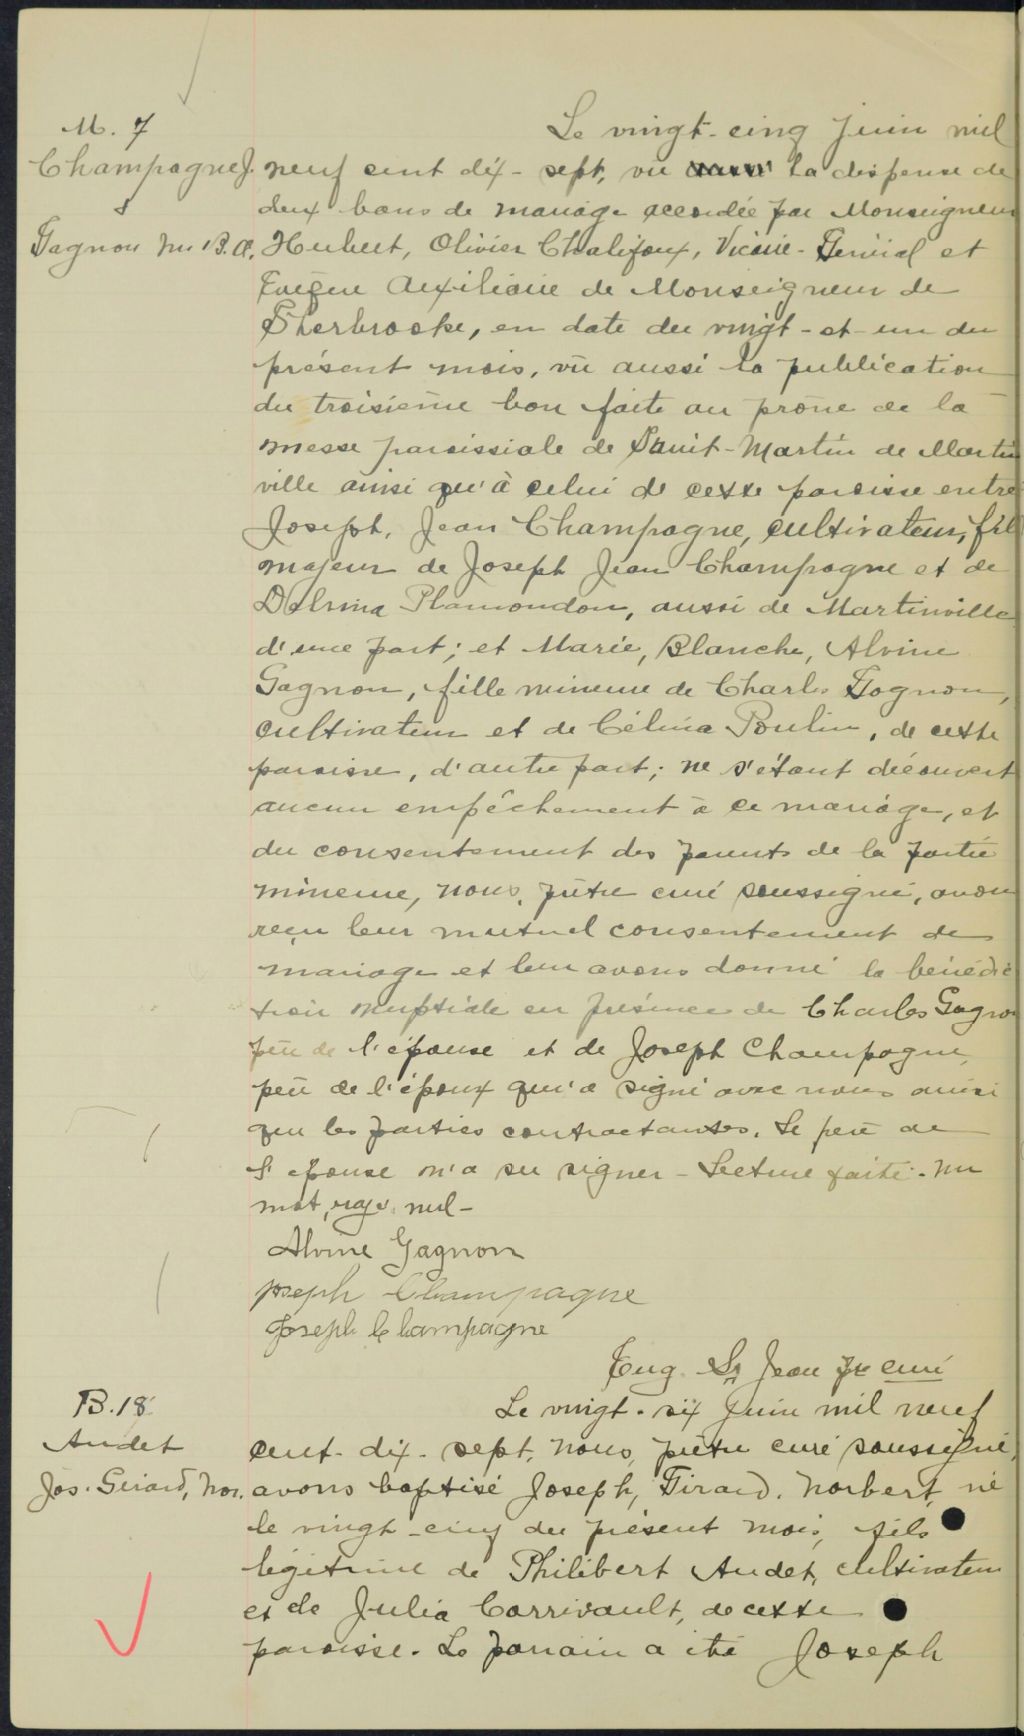 M. 7
Champagne J.
&
Gagnon M. B. A.
Le vingt-cinq juin mil
neuf cent dix-sept, vu la dispense de
deux bans de mariage accordée par Monseigneur
Hubert, Olivier Chalifoux, Vicaire-Général et
Évêque Auxiliaire de Monseigneur de
Sherbrooke, en date du vingt-et-un du
présent mois, vu aussi la publication
du troisième ban faite au prône de la
messe paroissiale de Saint-Martin de Martin
ville ainsi qu'à celui de cette paroisse entre
Joseph, Jean Champagne, cultivateur, fils
majeur de Joseph Jean Champagne et de
Delvina Plamondon, aussi de Martinville
d'une part; et Marie, Blanche, Alvine
Gagnon, fille mineure de Charles Gagnon,
cultivateur et de Célina Poulin, de cette
paroisse, d'autre part; ne s'étant découvert
aucun empêchement à ce mariage, et
du consentement des parents de la partie
mineure, nous, prêtre curé soussigné, avons
reçu leur mutuel consentement de
mariage et leur avons donné la bénédic
tion nuptiale en présence de Charles Gagnon
père de l'épouse et de Joseph Champagne,
père de l'époux qui a signé avec nous ainsi
que les parties contractantes. Le père de
l'épouse n'a su signer - Lecture faite. Un
mot, rayé nul -
Alvine Gagnon
Joseph Champagne
Joseph Champagne
Eug. St Jean ptre curé
B. 18
Audet
Jos. Girard, Nor.
Le vingt-six juin mil neuf
cent-dix-sept, nous, prêtre curé soussigné,
avons baptisé Joseph, Girard, Norbert, né
le vingt-cinq du présent mois, fils
légitime de Philibert Audet, cultivateur
et de Julia Corrivault, de cette
paroisse. Le parrain a été Joseph